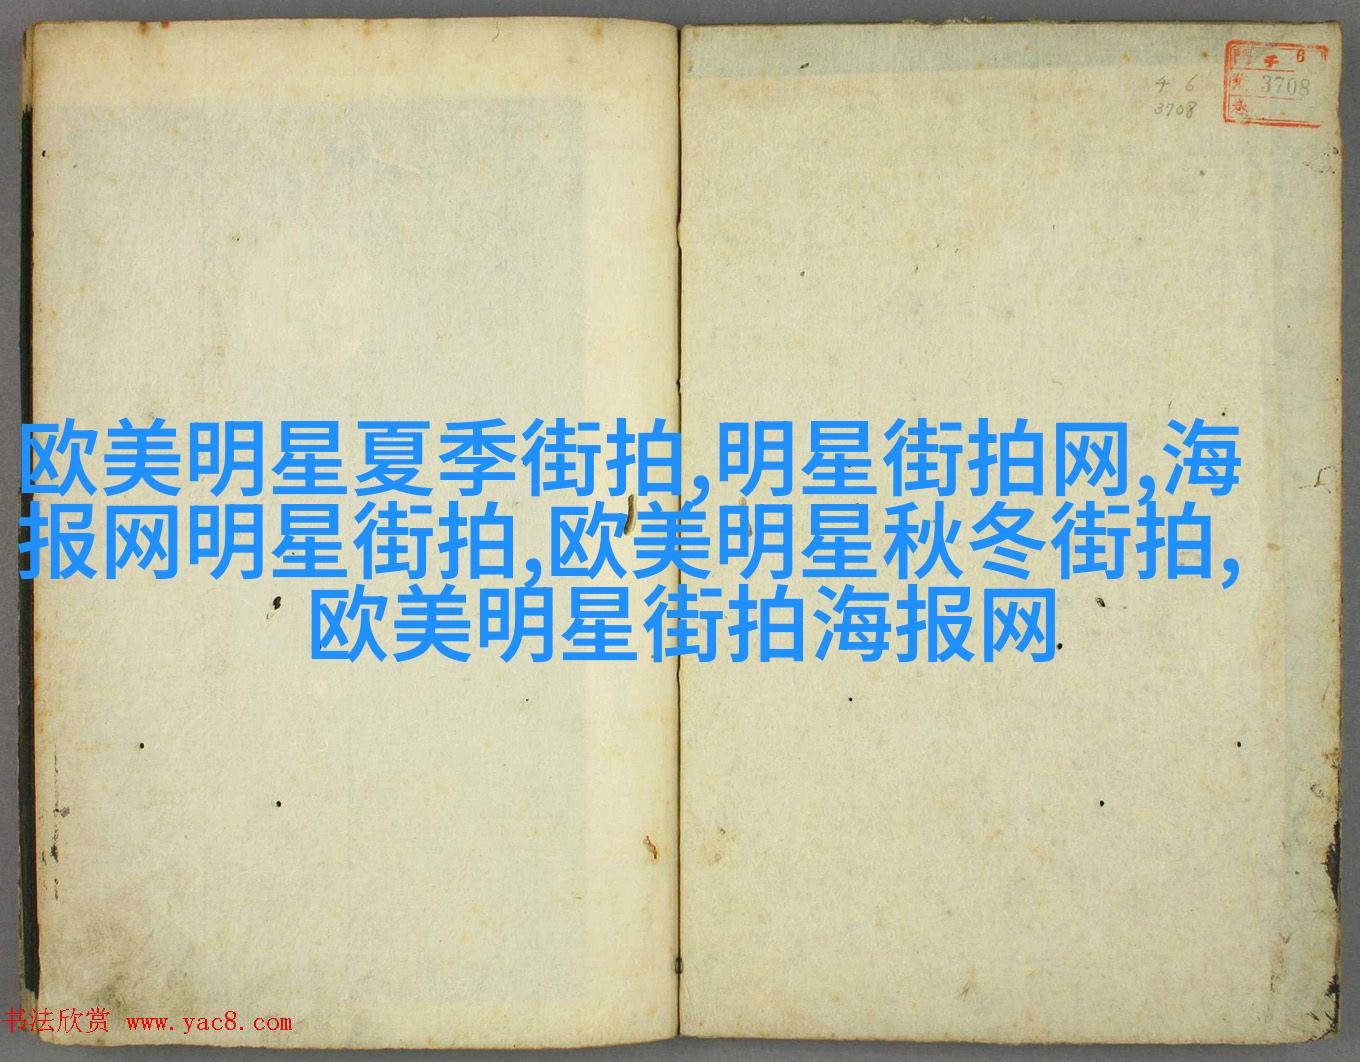 千 6
3708
門 千 6
3708
欧美明星夏季街拍,明星街拍网,海
报网明星街拍,欧美明星秋冬街拍,
欧美明星街拍海报网
书法欣赏 www.yac8.com